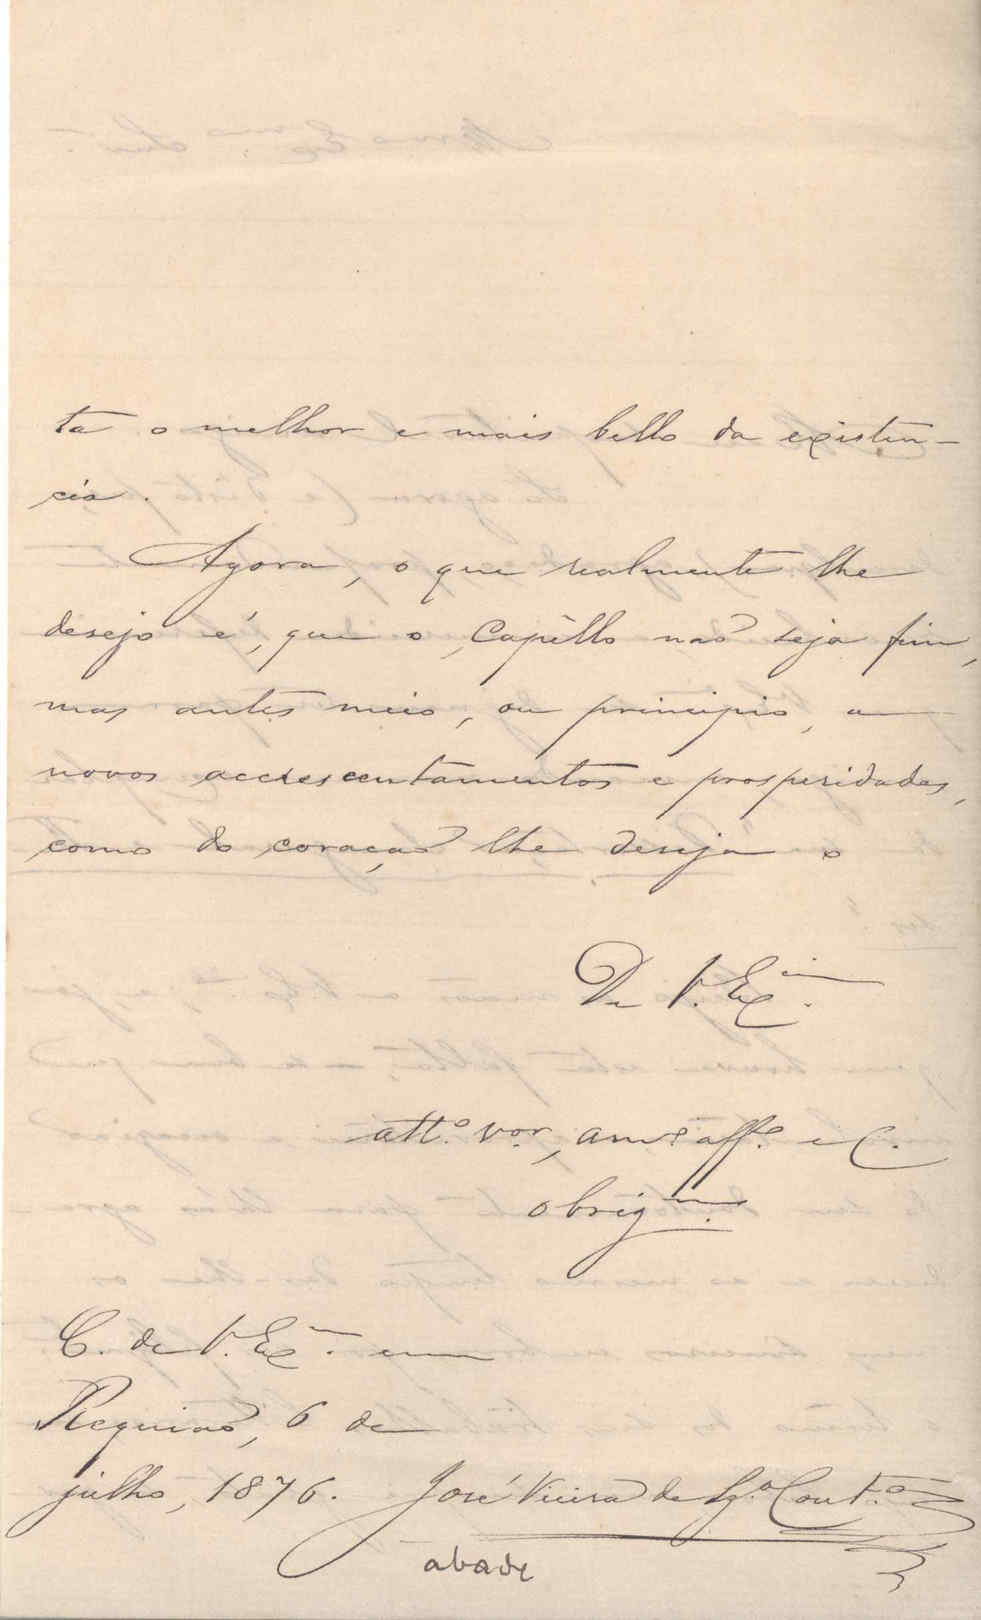 ta o melhor e mais bello da existen-
cia.
Agora, o que realmente lhe
desejo é, que o Capêllo não seja fim,
mas antes meio, ou principio, a
novos accrescentamentos e prosperidades,
como do coração lhe deseja o
De V. Exᶜⁱᵃ.
attº. vᵒʳ, amº affº. e C.
obrigᵐº.
C. de V. Exᵃ. em
Requião, 6 de
julho, 1876. José Vieira de Sz.ª Cout.º
abade